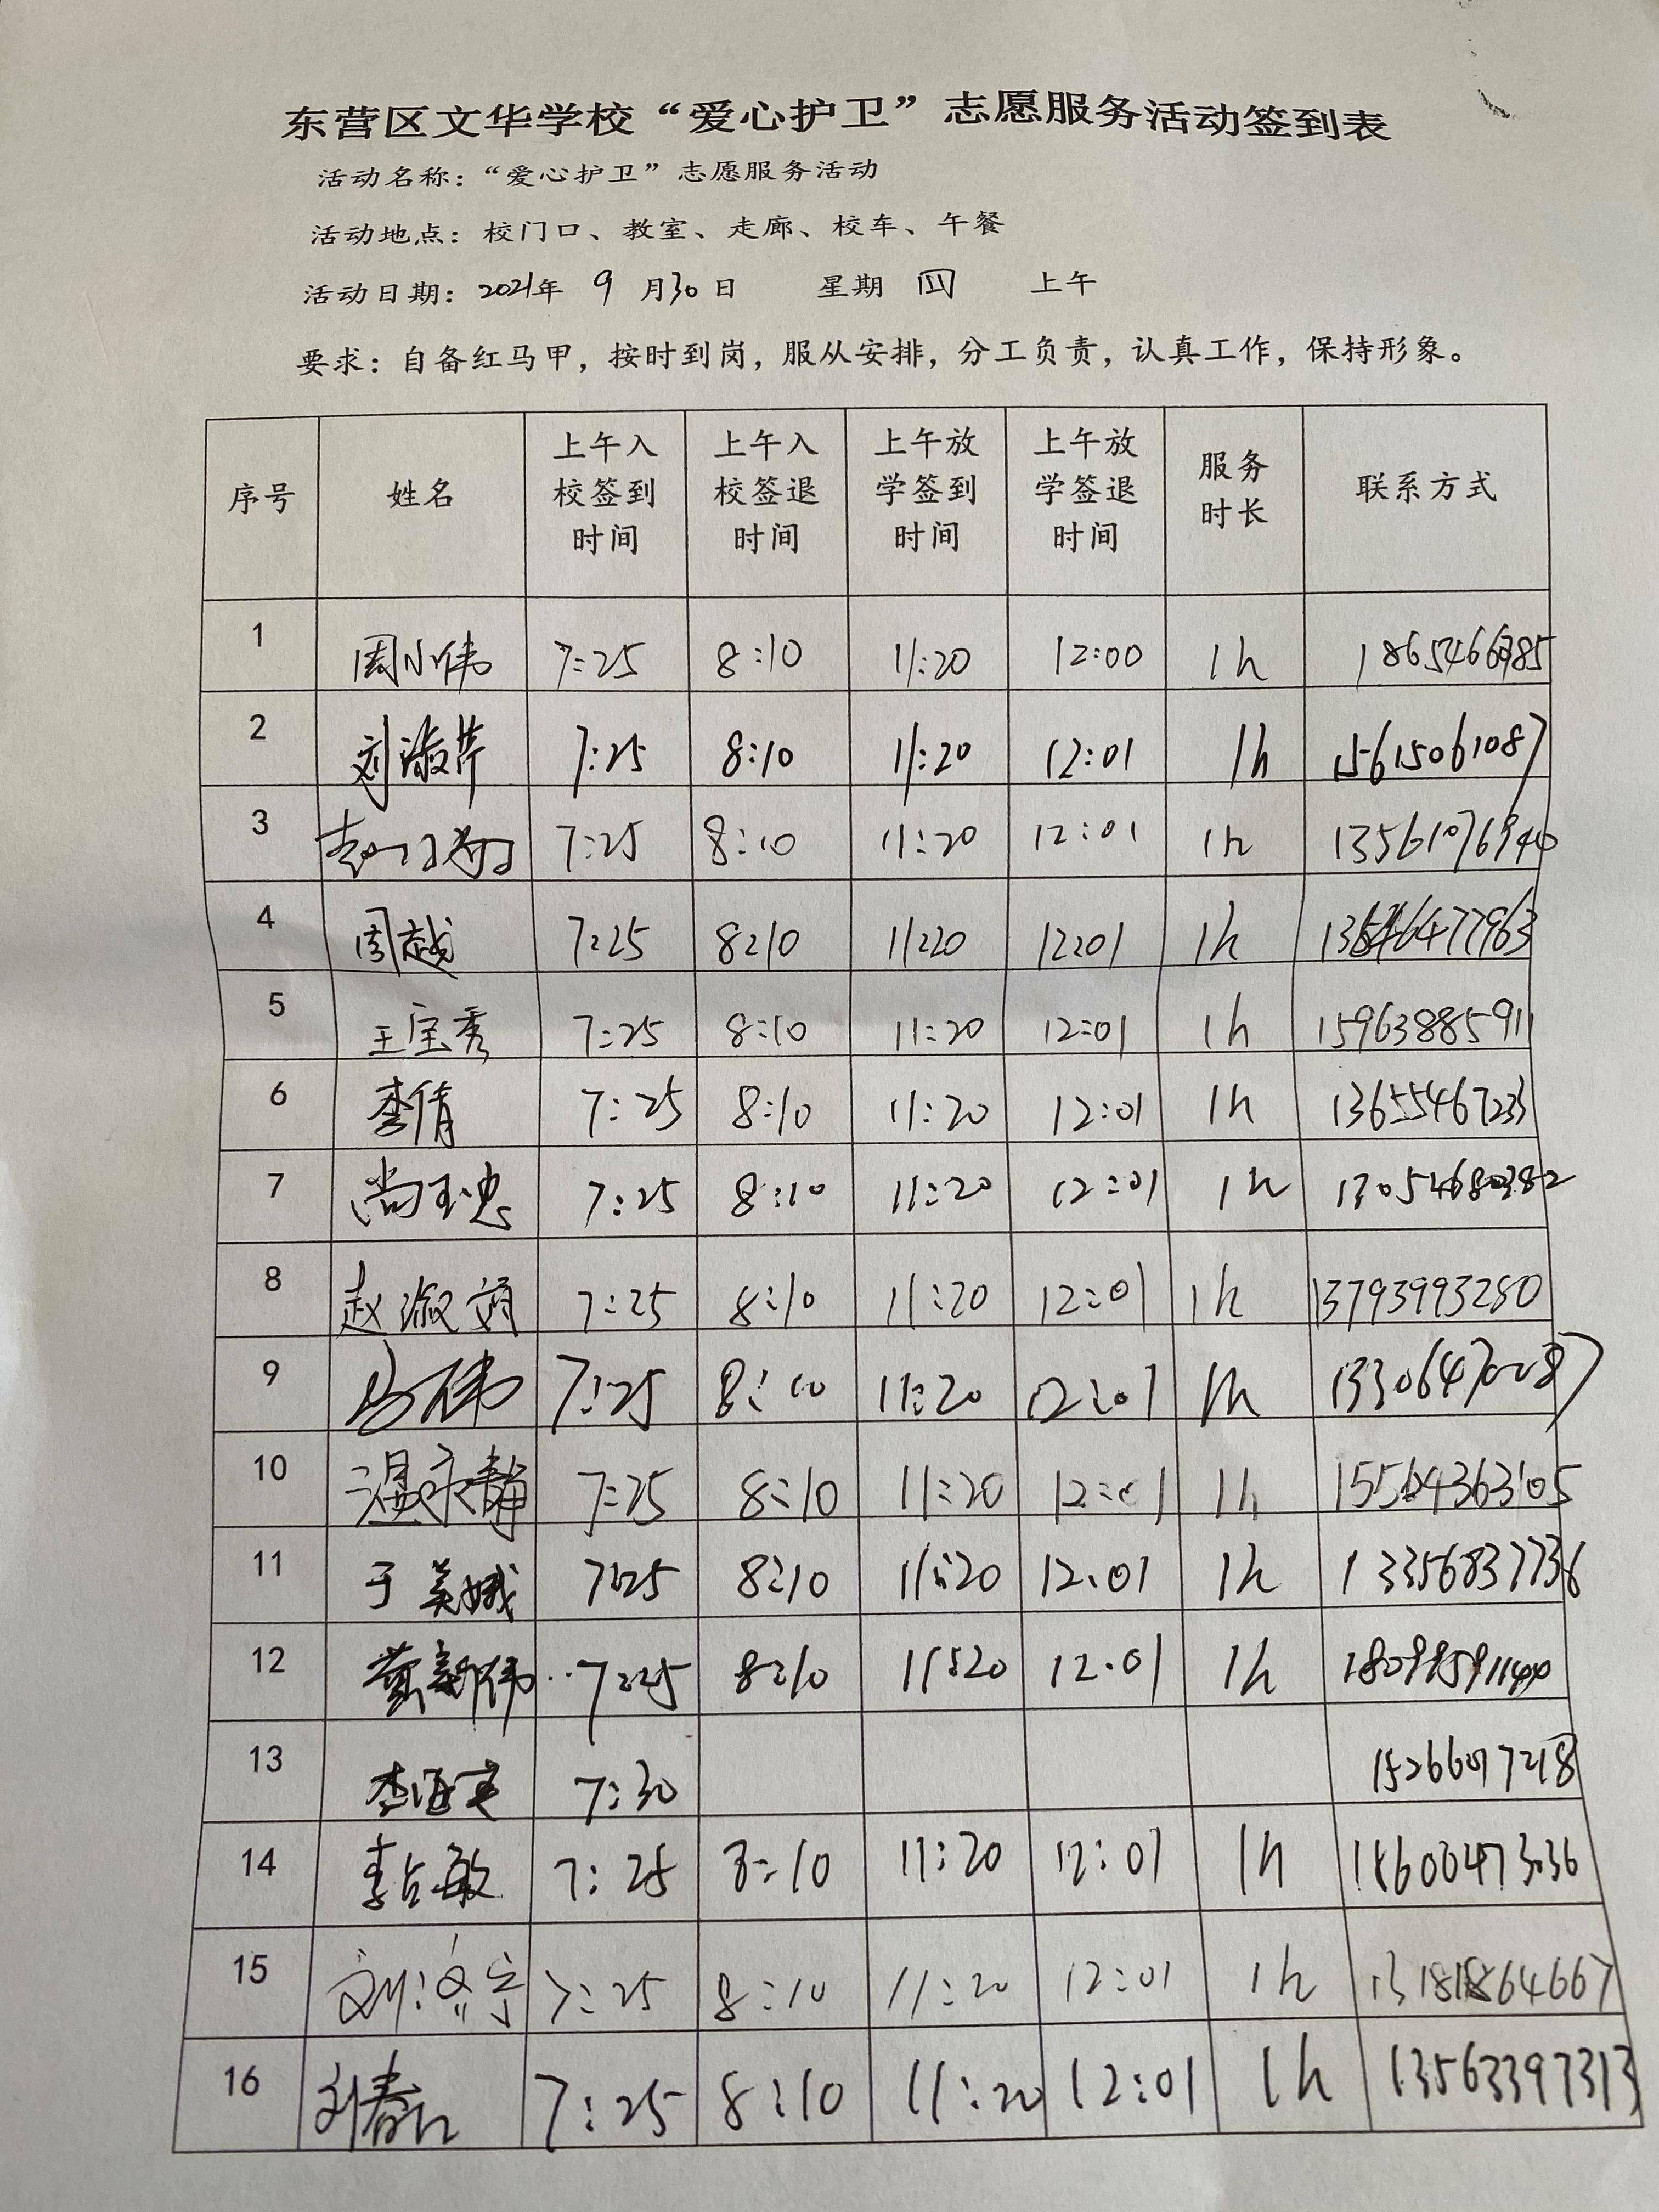 东营区文华学校“爱心护卫”志愿服务活动签到表
活动名称：“爱心护卫”志愿服务活动
活动地点：校门口、教室、走廊、校车、午餐
活动日期：2021年 9 月30日 星期 四 上午
要求：自备红马甲，按时到岗，服从安排，分工负责，认真工作，保持形象。
序号 姓名 上午入校签到时间 上午入校签退时间 上午放学签到时间 上午放学签退时间 服务时长 联系方式
1 周小伟 7:25 8:10 11:20 12:00 1h
2 刘淑芹 7:25 8:10 11:20 12:01 1h 15615061087
3 7:25 8:10 11:20 12:01 1h 13561076940
4 周越 7:25 8:10 11:20 12:01 1h
5 王宝秀 7:25 8:10 11:20 12:01 1h 15963885911
6 李倩 7:25 8:10 11:20 12:01 1h 13655467233
7 尚玉忠 7:25 8:10 11:20 12:01 1h 13054680382
8 赵淑 7:25 8:10 11:20 12:01 1h 13793993280
9 马伟 7:25 8:10 11:20 12:01 1h 13306470087
10 温永静 7:25 8:10 11:20 12:01 1h 15564363105
11 于美娥 7:25 8:10 11:20 12:01 1h 13356837736
12 新伟 7:25 8:10 11:20 12:01 1h
13 李海 7:30 15266017218
14 李占敏 7:25 8:10 11:20 12:01 1h
15 刘 7:25 8:10 11:20 12:01 1h 13181864667
16 刘春 7:25 8:10 11:20 12:01 1h 13563397313